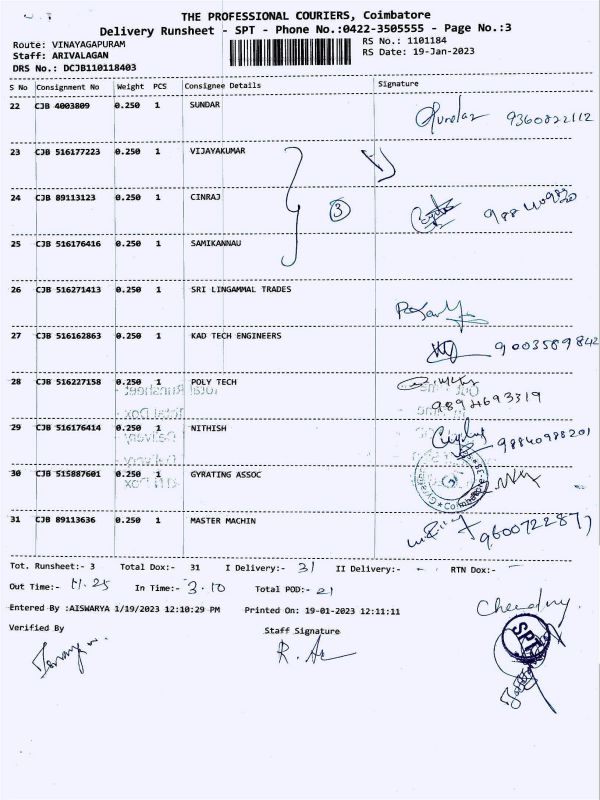 THE PROFESSIONAL COURIERS, Coimbatore
Delivery Runsheet - SPT - Phone No.:0422-3505555 - Page No.:3
Route: VINAYAGAPURAM
RS No.: 1101184
Staff: ARIVALAGAN
RS Date: 19-Jan-2023
DRS No.: DCJB110118403
S No Consignment No Weight PCS Consignee Details Signature
22 CJB 4003809 0.250 1 SUNDAR
9360822112
23 CJB 516177223 0.250 1 VIJAYAKUMAR
24 CJB 89113123 0.250 1 CINRAJ
3
25 CJB 516176416 0.250 1 SAMIKANNAU
26 CJB 516271413 0.250 1 SRI LINGAMMAL TRADES
27 CJB 516162863 0.250 1 KAD TECH ENGINEERS
9003589842
28 CJB 516227158 0.250 1 POLY TECH
9894693319
29 CJB 516176414 0.250 1 NITHISH
9884098201
30 CJB 515887601 0.250 1 GYRATING ASSOC
31 CJB 89113636 0.250 1 MASTER MACHIN
9600722877
Tot. Runsheet:- 3 Total Dox:- 31 I Delivery:- 31 II Delivery:- - RTN Dox:- -
Out Time:- 11.25 In Time:- 3.10 Total POD:- 21
Entered By :AISWARYA 1/19/2023 12:10:29 PM Printed On: 19-01-2023 12:11:11
Verified By Staff Signature
SPT